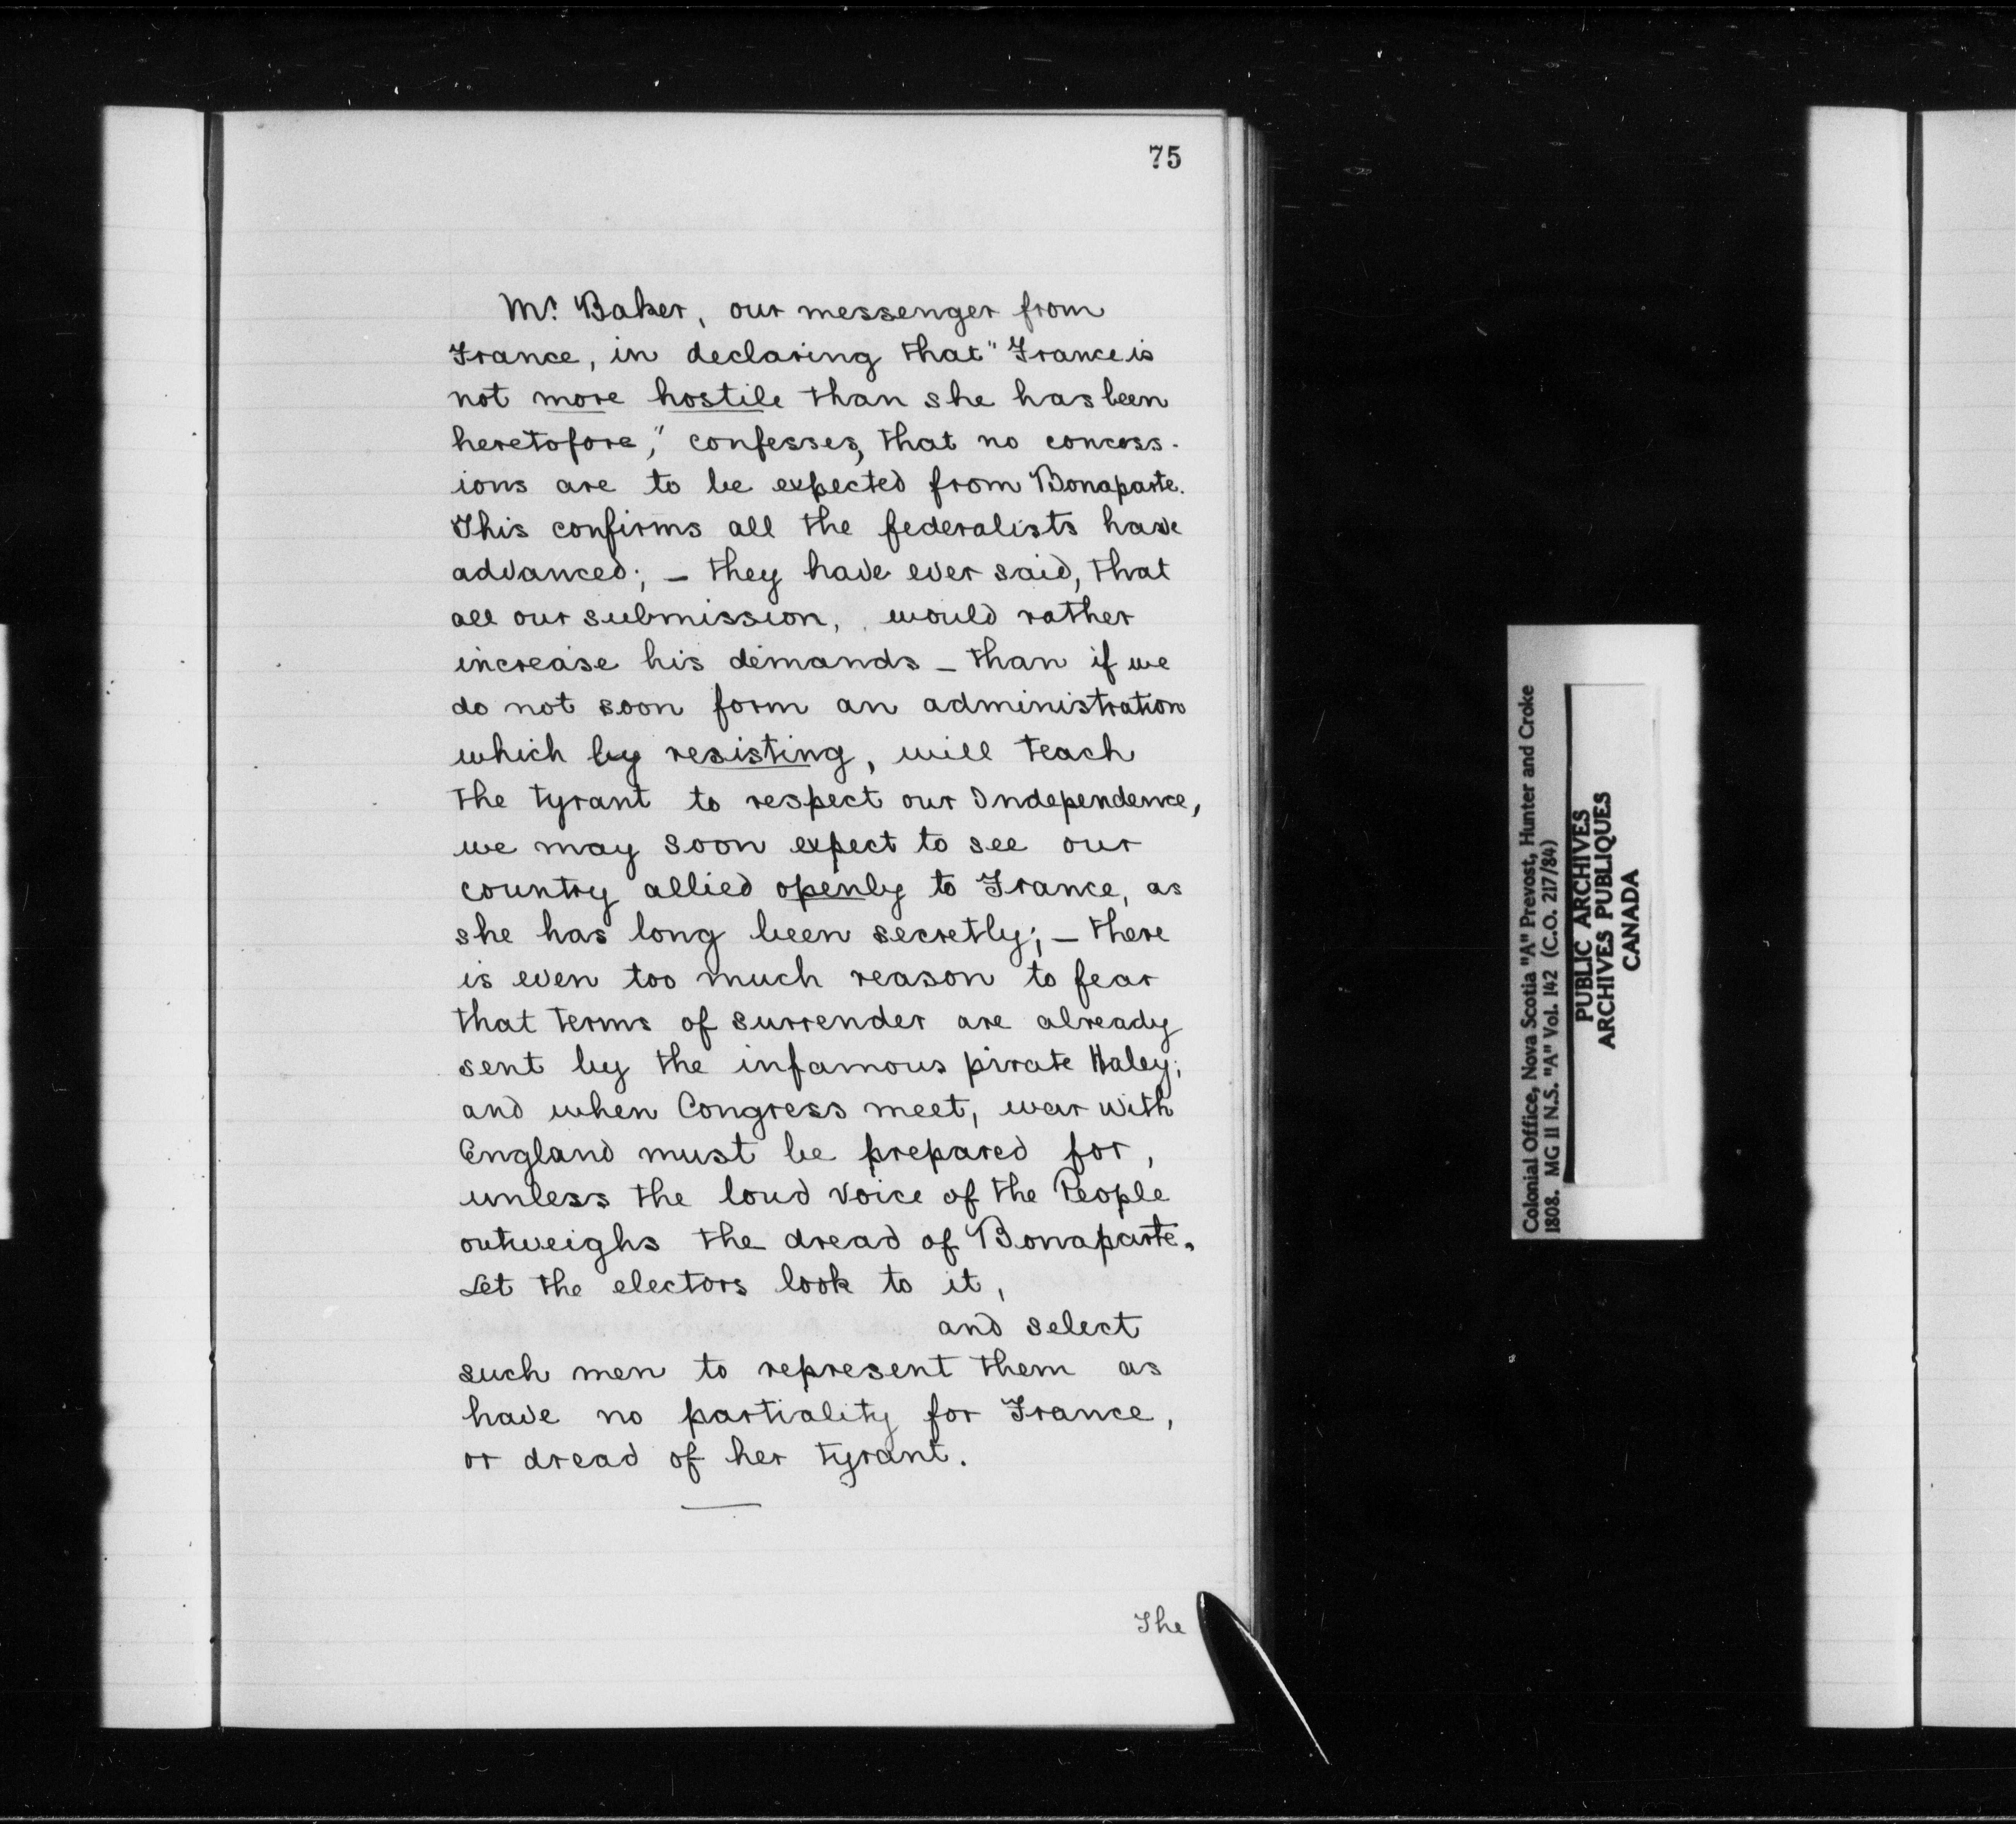 75
Mr. Baker, our messenger from
France, in declaring that "France is
not more hostile than she has been
heretofore," confesses, that no concess-
ions are to be expected from Bonaparte.
This confirms all the federalists have
advanced; - they have ever said, that
all our submission, would rather
increase his demands - than if we
do not soon form an administration
which by resisting, will teach
the tyrant to respect our Independence,
we may soon expect to see our
country allied openly to France, as
she has long been secretly; - there
is even too much reason to fear
that terms of surrender are already
sent by the infamous pirate Haley;
and when Congress meet, war with
England must be prepared for,
unless the loud voice of the People
outweighs the dread of Bonaparte.
Let the electors look to it,
and select
such men to represent them as
have no partiality for France,
or dread of her tyrant.
The
Colonial Office, Nova Scotia "A" Prevost, Hunter and Croke
1808. MG 11 N.S. "A" Vol. 142 (C.O. 217/84)
PUBLIC ARCHIVES
ARCHIVES PUBLIQUES
CANADA